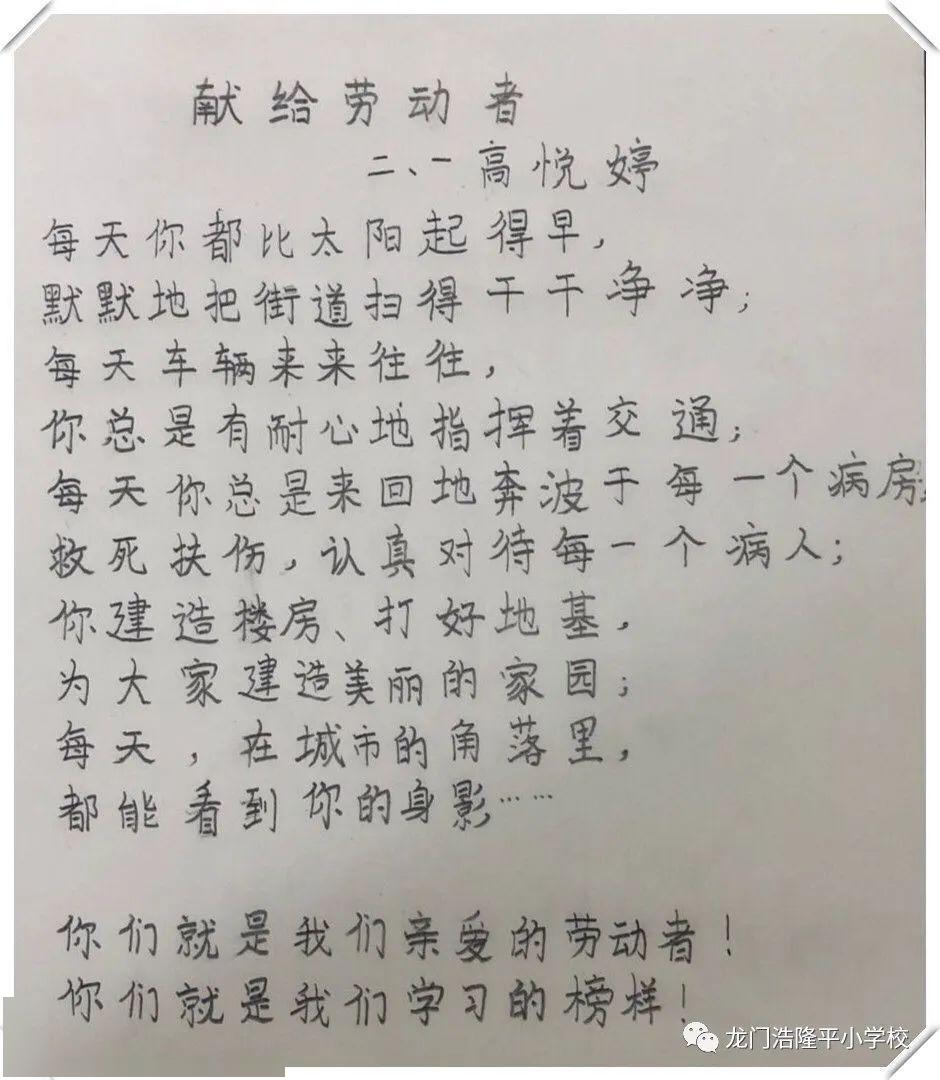 献给劳动者
二、一高悦婷
每天你都比太阳起得早,
默默地把街道扫得干干净净;
每天车辆来来往往,
你总是有耐心地指挥着交通;
每天你总是来回地奔波于每一个病房,
救死扶伤,认真对待每一个病人;
你建造楼房、打好地基,
为大家建造美丽的家园;
每天,在城市的角落里,
都能看到你的身影……
你们就是我们亲爱的劳动者!
你们就是我们学习的榜样!
龙门浩隆平小学校